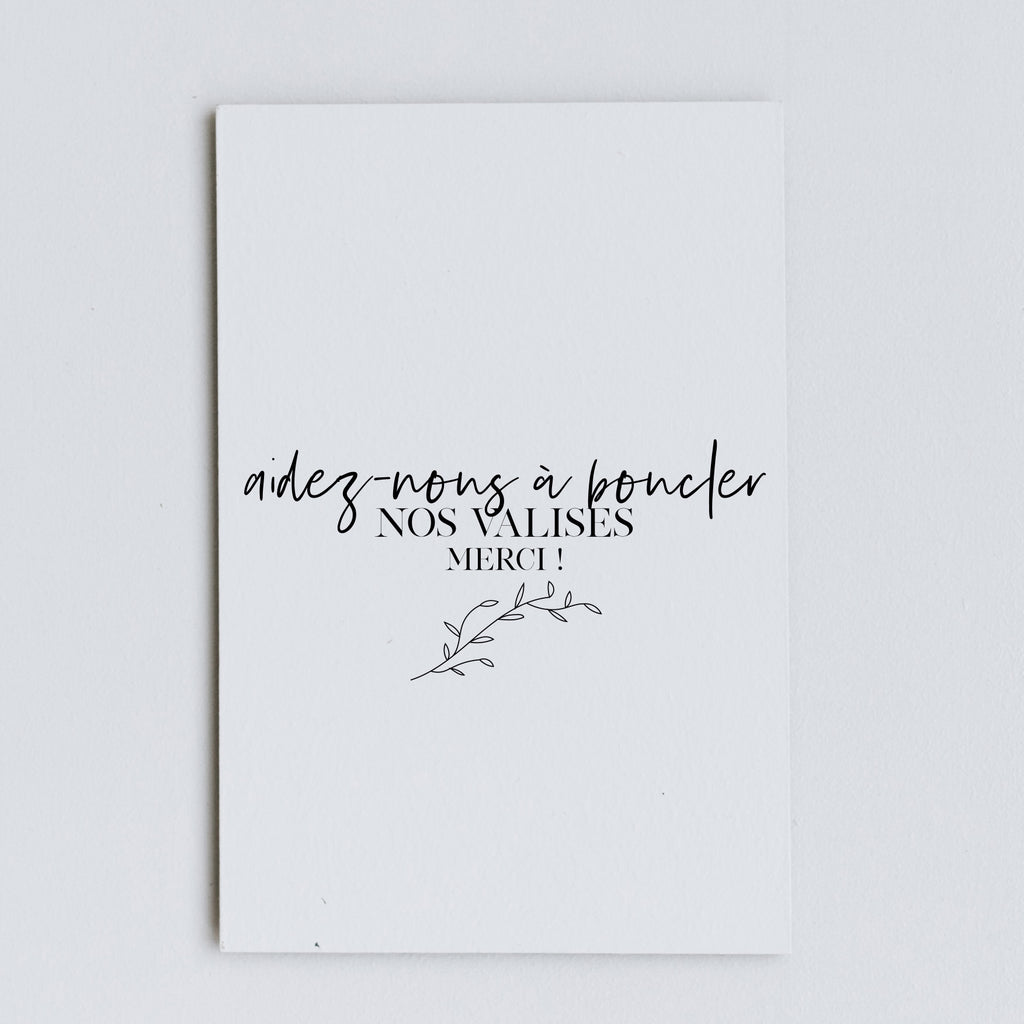 aidez-nous à boucler
NOS VALISES
MERCI !